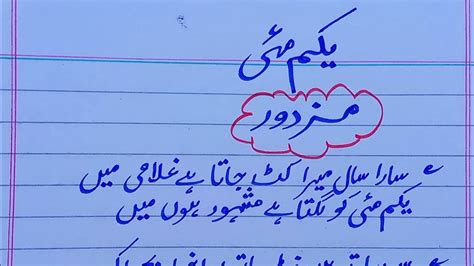 یکم مئی
مزدور
سارا سال میرا کٹ جاتا ہے غلامی میں
یکم مئی کو لگتا ہے مشہور ہوں میں